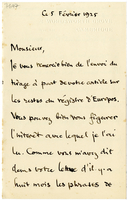 5 Février 1925
Monsieur,
Je vous remercie bien de l'envoi du
tirage à part de votre article sur
les restes du régistre d'Europos.
Vous pouvez bien vous figurer
l'intérêt avec lequel je l'ai
lu. Comme vous m'avez dit
dans votre lettre d'il-y-a
huit mois les phrases de